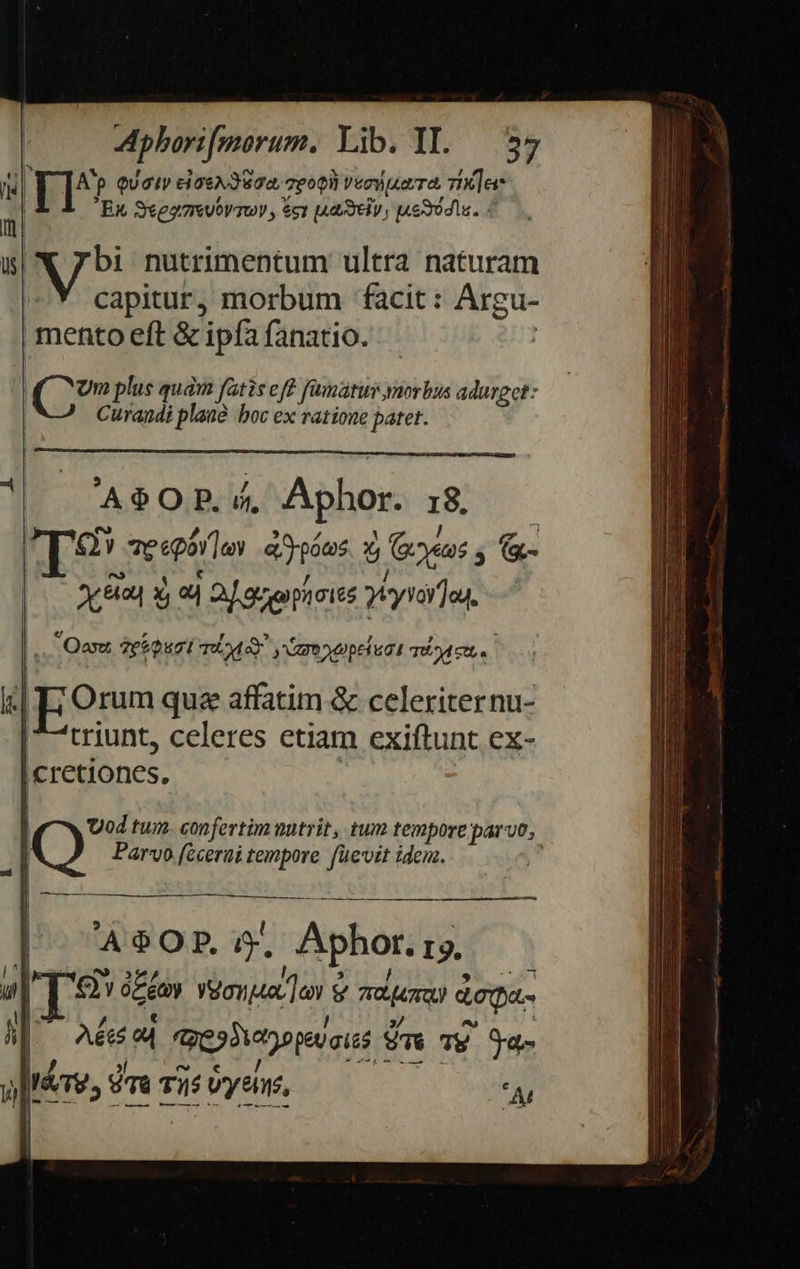 Aphoriſmorum. Lib. II. 37
ΠΑρ φύσιν εἰσελθοῦσα τροφὴ νεσήματα τίκτει·
Ἐκ θεραπευόντων, ἔστι μαθεῖν, μεθόδου.
Vbi nutrimentum ultra naturam
capitur, morbum facit: Argu-
mento eſt & ipſa ſanatio.
CUm plus quàm ſatis eſt ſumatur morbus adurget:
Curandi planè hoc ex ratione patet.
ἈΦΟΡ. ιή. Aphor. 18.
ΤΩν τρεφόντων ἀθρόως καὶ ταχέως, τα-
χεῖαι καὶ αἱ διαχωρήσιες γίγνονται.
Ὅσσα τρέφουσι τάχισθ', ὑποχωρείουσι τάχιστα.
EOrum quæ affatim & celeriter nu-
triunt, celeres etiam exiſtunt ex-
cretiones.
QUod tum confertim nutrit, tum tempore parvo,
Parvo ſecerni tempore ſuevit idem.
ἈΦΟΡ. ιθ'. Aphor. 19.
ΤΩν ὀξέων νουσημάτων οὐ πάμπαν ἀσφα-
λέες αἱ προδιαγορεύσιες οὔτε τοῦ θα-
νάτου, οὔτε τῆς ὑγείης.
Αἱ